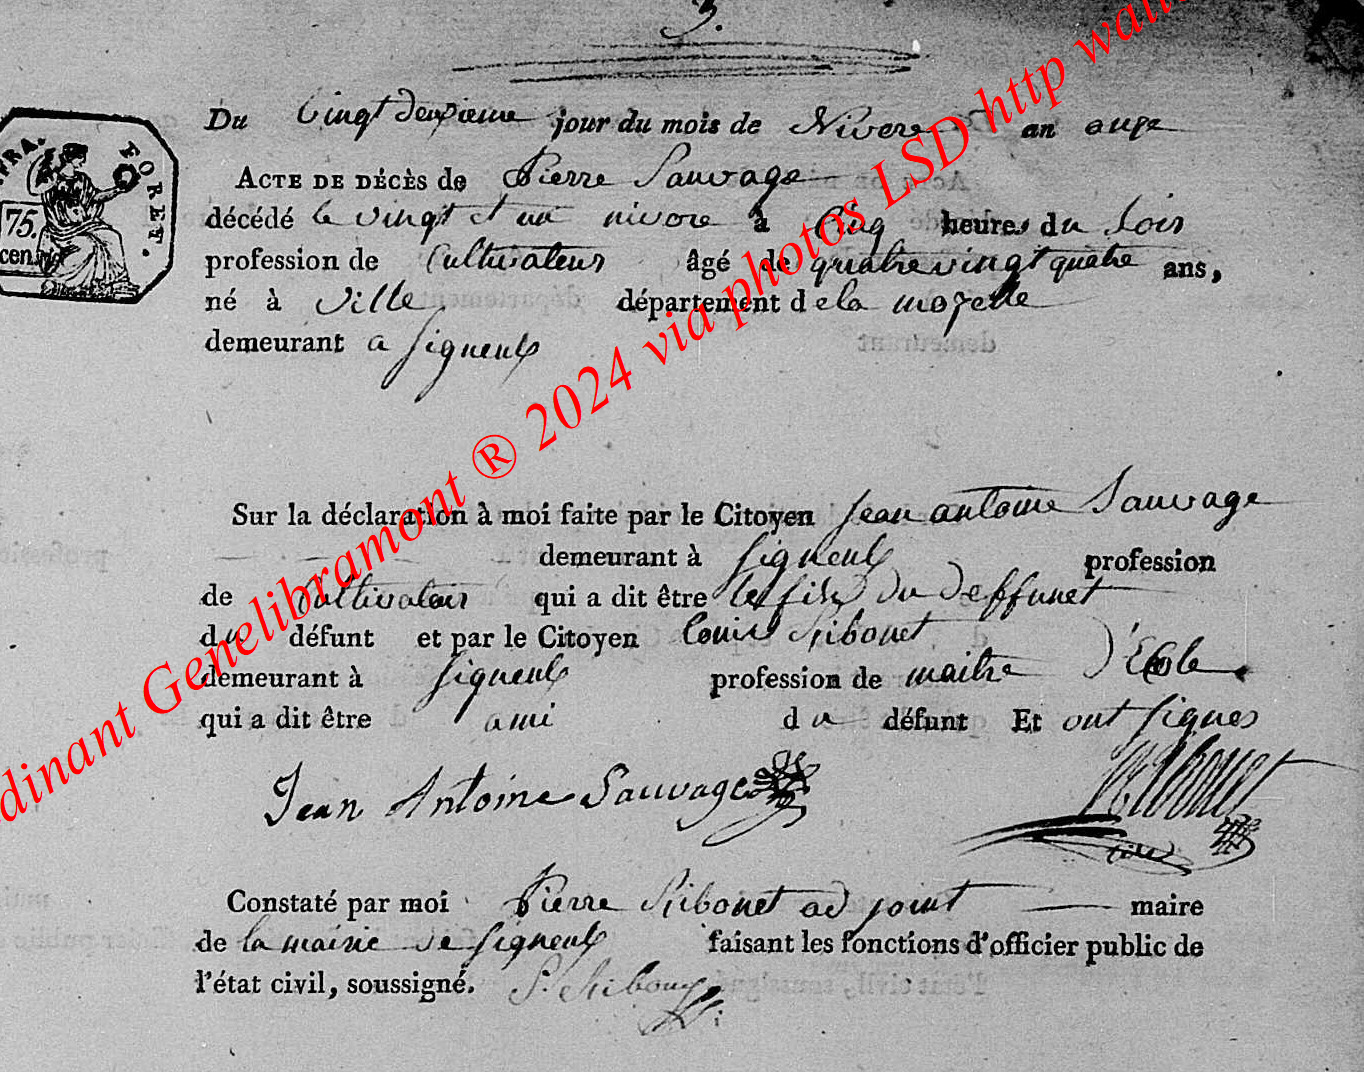 3.
Du Vingt deuxieme jour du mois de Nivose an onze
ACTE DE DÉCÈS de Pierre Sauvage
décédé le vingt et un nivose à Cinq heures du Soir
profession de Cultivateur âgé de quatrevingt quatre ans,
né à Ville département dela mozelle
demeurant a Signeulx
FRA. FORET.
75.
cen.
Sur la déclaration à moi faite par le Citoyen Jean antoine Sauvage
demeurant à Signeulx profession
de Cultivateur qui a dit être le fils du deffunct
du défunt et par le Citoyen Louis Ribonet
demeurant à Signeulx profession de maitre d'Ecole
qui a dit être ami du défunt Et ont signes
Jean Antoine Sauvage
Ribonet
Constaté par moi Pierre Ribonet adjoint maire
de la mairie de Signeulx faisant les fonctions d'officier public de
l'état civil, soussigné. P. Ribonet
dinant Genelibramont ® 2024 via photos LSD http